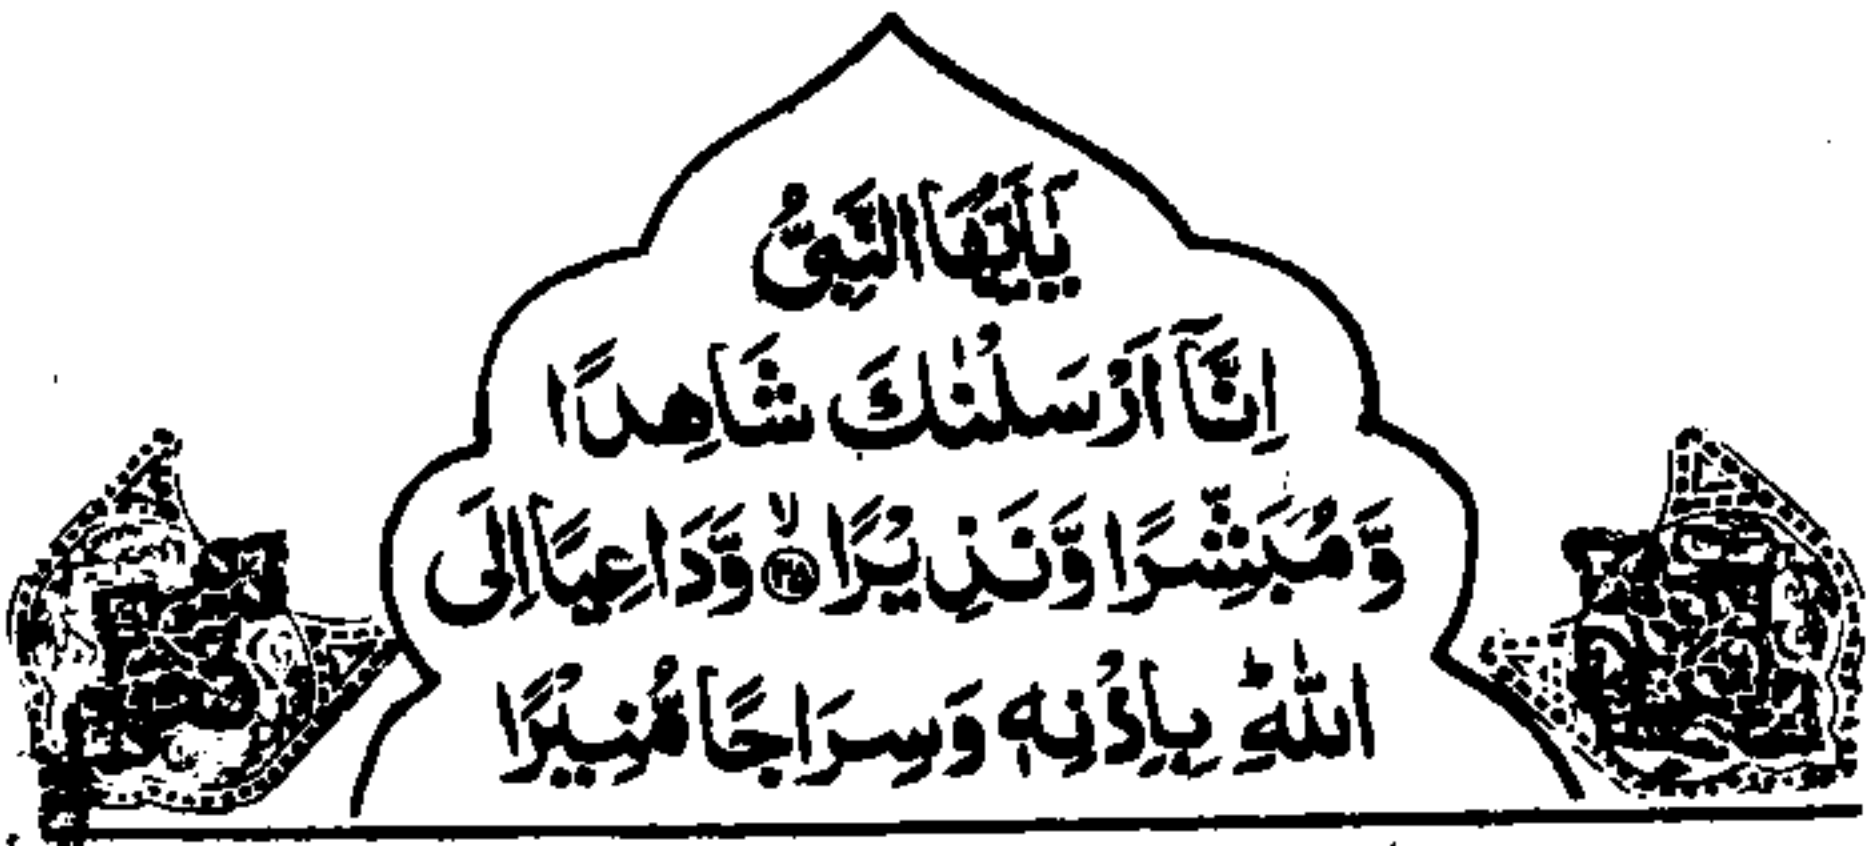 يٰۤاَيُّهَا النَّبِيُّ
اِنَّاۤ اَرْسَلْنٰكَ شَاهِدًا
وَّمُبَشِّرًا وَّنَذِيْرًا ۙ﴿۴۵﴾ وَّدَاعِيًا اِلَى
اللّٰهِ بِاِذْنِهٖ وَسِرَاجًا مُّنِيْرًا